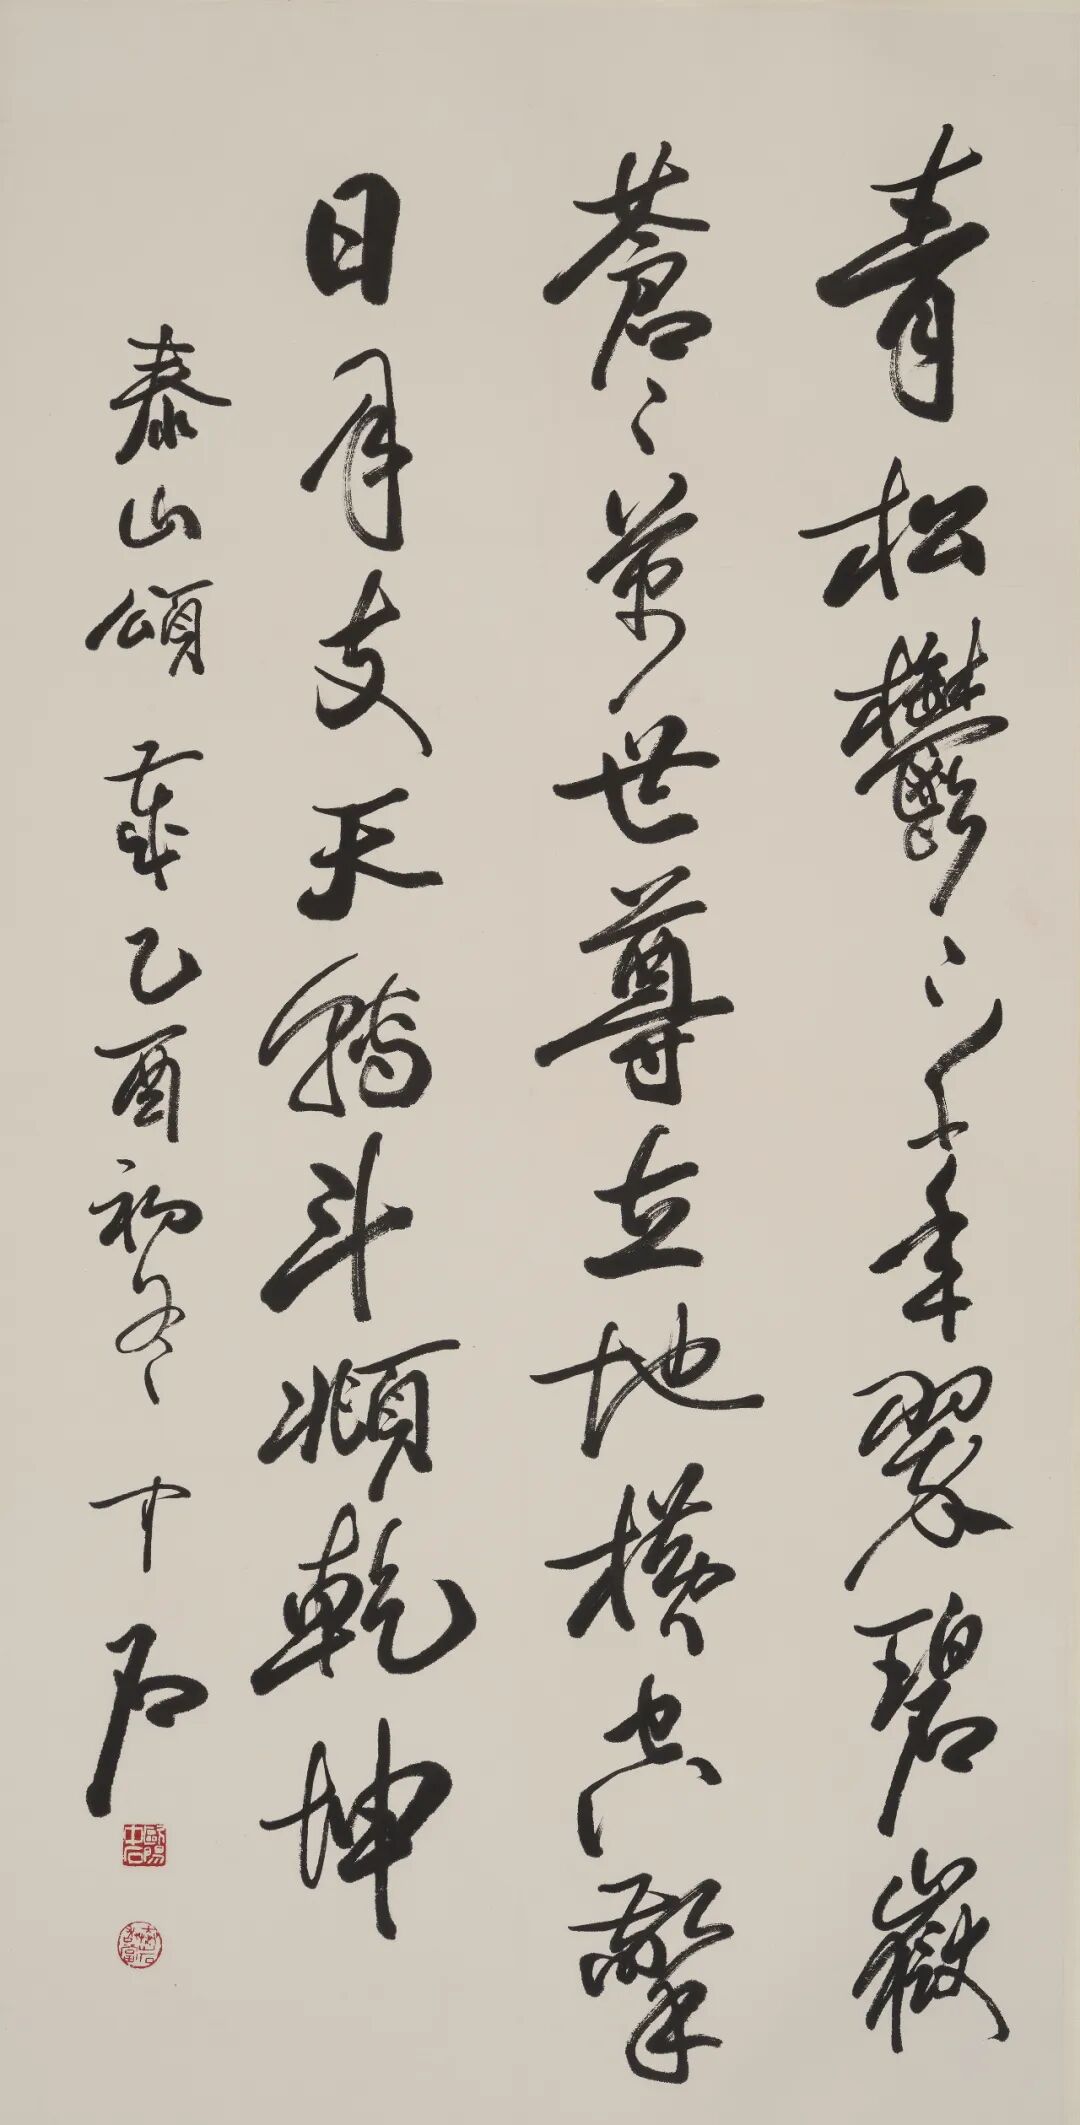 青松鬱〻千年翠碧嶽
蒼〻萬世尊立地橫空擎
日月支天斗頫乾坤
泰山頌 歲乙酉初冬 中石
歐陽中石